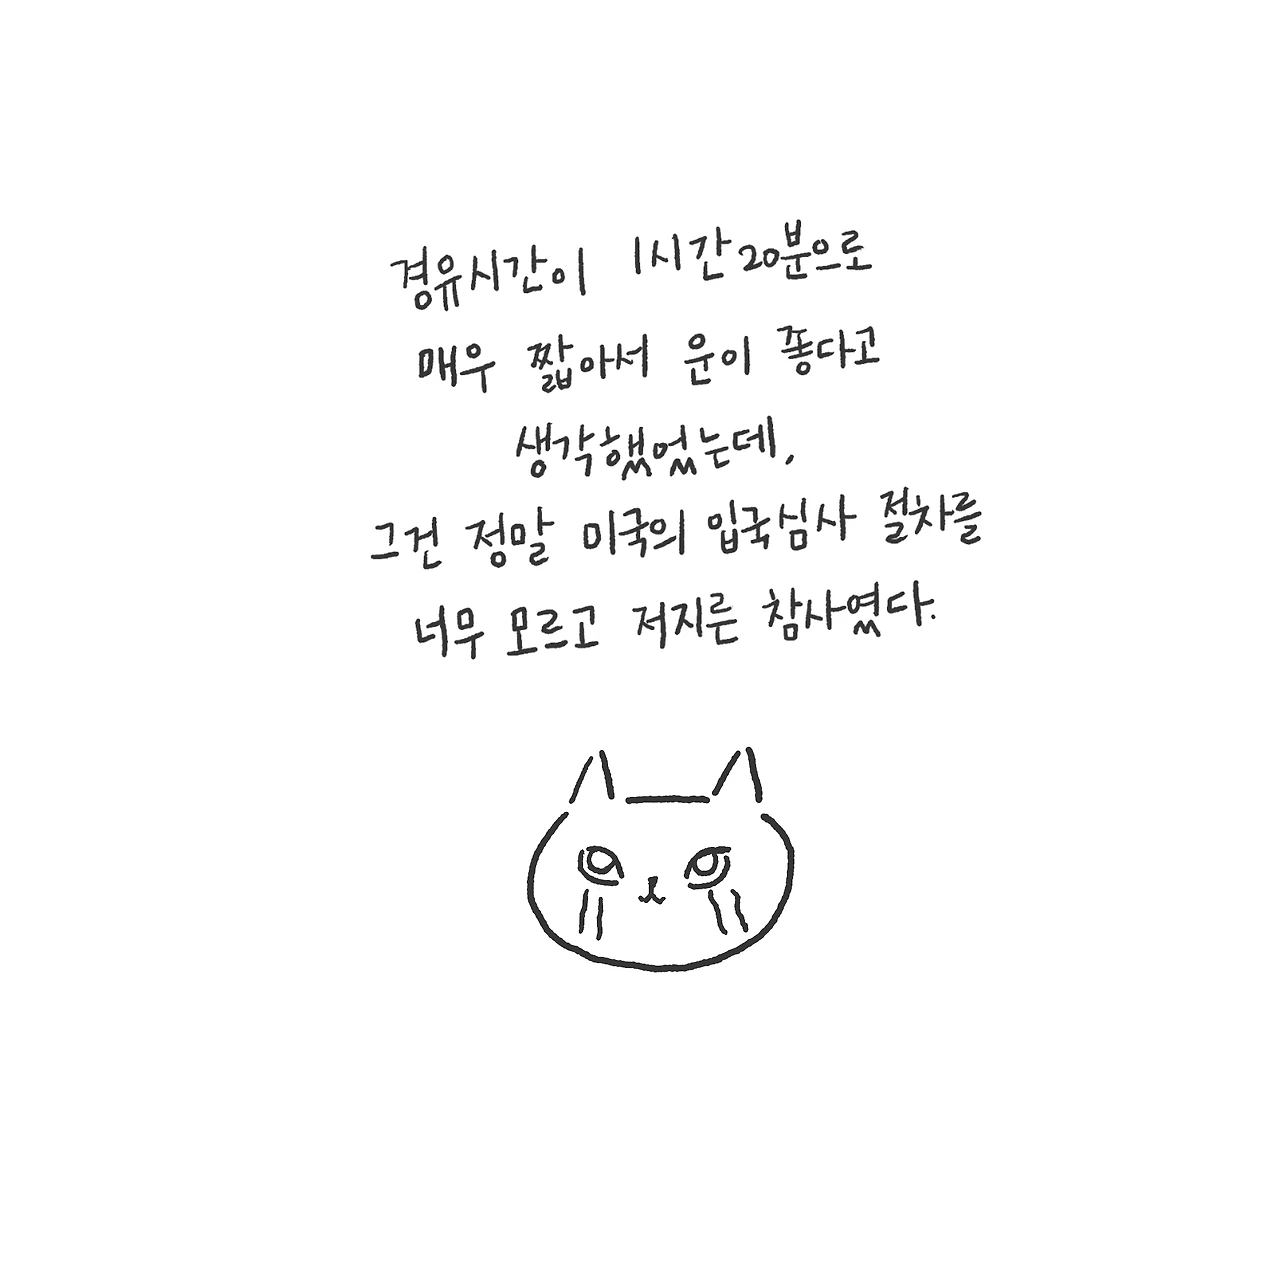 경유시간이 1시간20분으로
매우 짧아서 운이 좋다고
생각했었는데,
그건 정말 미국의 입국심사 절차를
너무 모르고 저지른 참사였다.